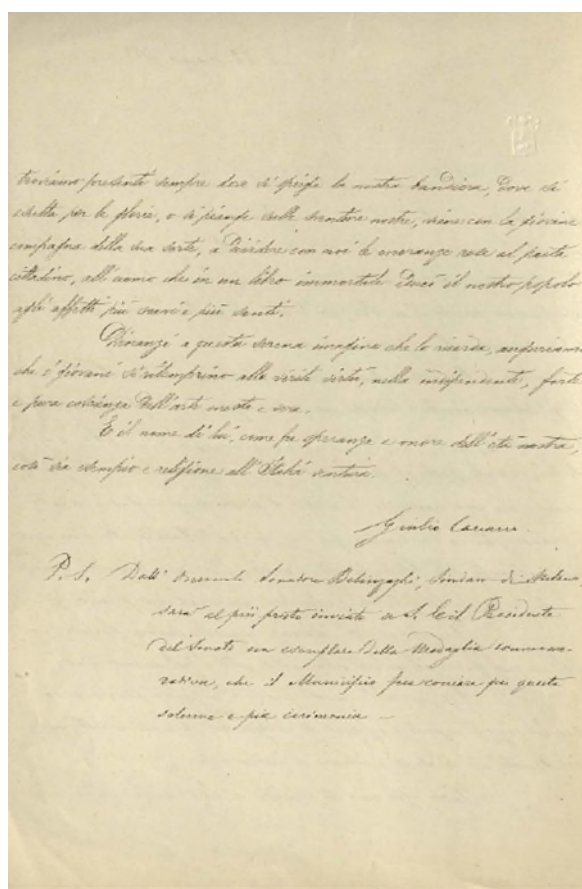 troviamo presente sempre dove si spiega la nostra bandiera, dove si
esulta per le glorie, o si piange sulle sventure nostre, viene con la giovine
compagna della sua sorte, a dividere con noi le onoranze rese al poeta
cittadino, all'uomo che in un libro immortale educò il nostro popolo
agli affetti più soavi e più santi.
Dinanzi a questa serena imagine che lo ricorda, auguriamo
che i giovani si ritemprino alla virile virtù, nella indipendente, forte
e pura coscienza dell'arte onesta e vera.
E il nome di lui, come fu speranza e onore dell'età nostra,
così sia esempio e religione all'Italia ventura.
Giulio Carcano.
P. S. Dall' Senatore Belinzaghi, Sindaco di Milano,
sarà al più presto inviato a S. Ecc. il Presidente
del Senato un esemplare della Medaglia commemo-
rativa, che il Municipio fece coniare per questa
solenne e pia cerimonia –